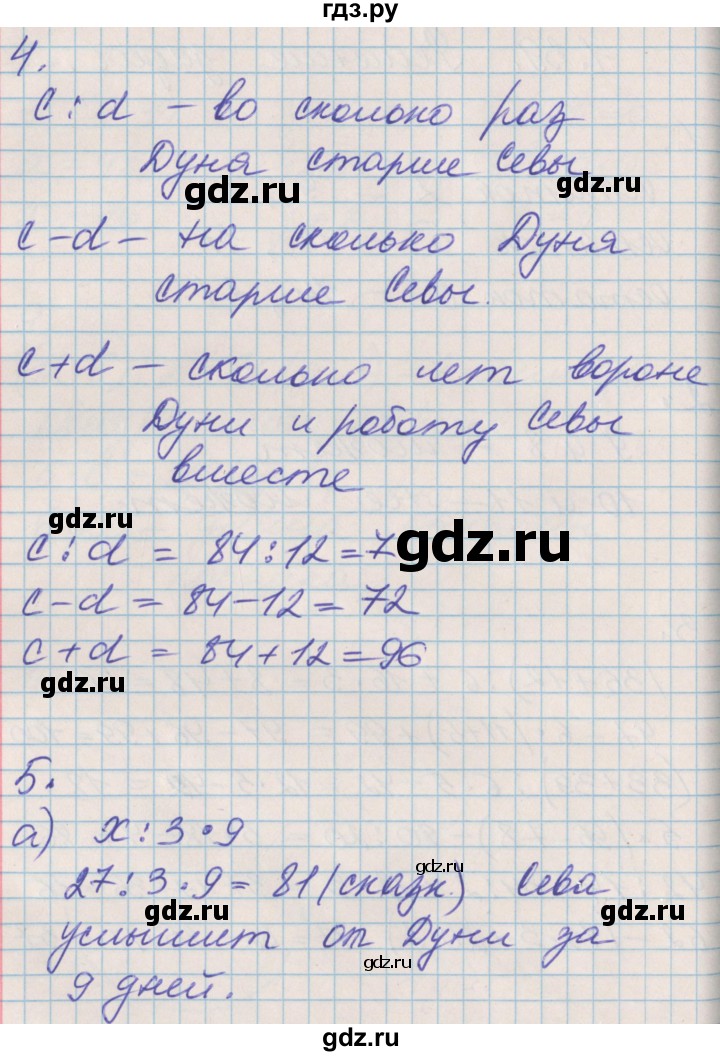 гдз.ру
4.
c : d – во сколько раз
Дуня старше Севы
gdz.ru
gdz.ru
c – d – на сколько Дуня
старше Севы.
c + d – сколько лет вороне
Дуни и роботу Севы
вместе
gdz.ru
c : d = 84 : 12 = 7
gdz.ru
c – d = 84 – 12 = 72
c + d = 84 + 12 = 96
gdz.ru
5.
а) x : 3 · 9
gdz.ru
27 : 3 · 9 = 81 (сказк.) Сева
gdz.ru
gdz.ru
услышит от Дуни за
gdz.ru
9 дней.
gdz.ru